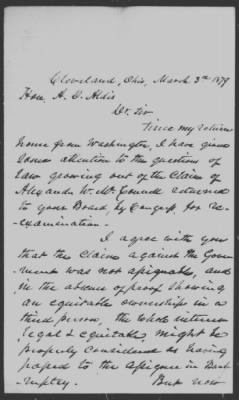 Cleveland, Ohio, March 3rd 1879
Hon. A. O. Aldis
Dr. Sir
Since my return
home from Washington, I have given
some attention to the questions of
law growing out of the claim of
Alexander W. McConnell returned
to your Board, by Congress, for re-
examination.
I agree with you
that the claim against the Govern-
ment was not assignable, and
in the absence of proof showing
an equitable ownership in a
third person, the whole interest
legal & equitable, might be
properly considered as having
passed to the assignee in Bank-
ruptcy. But now